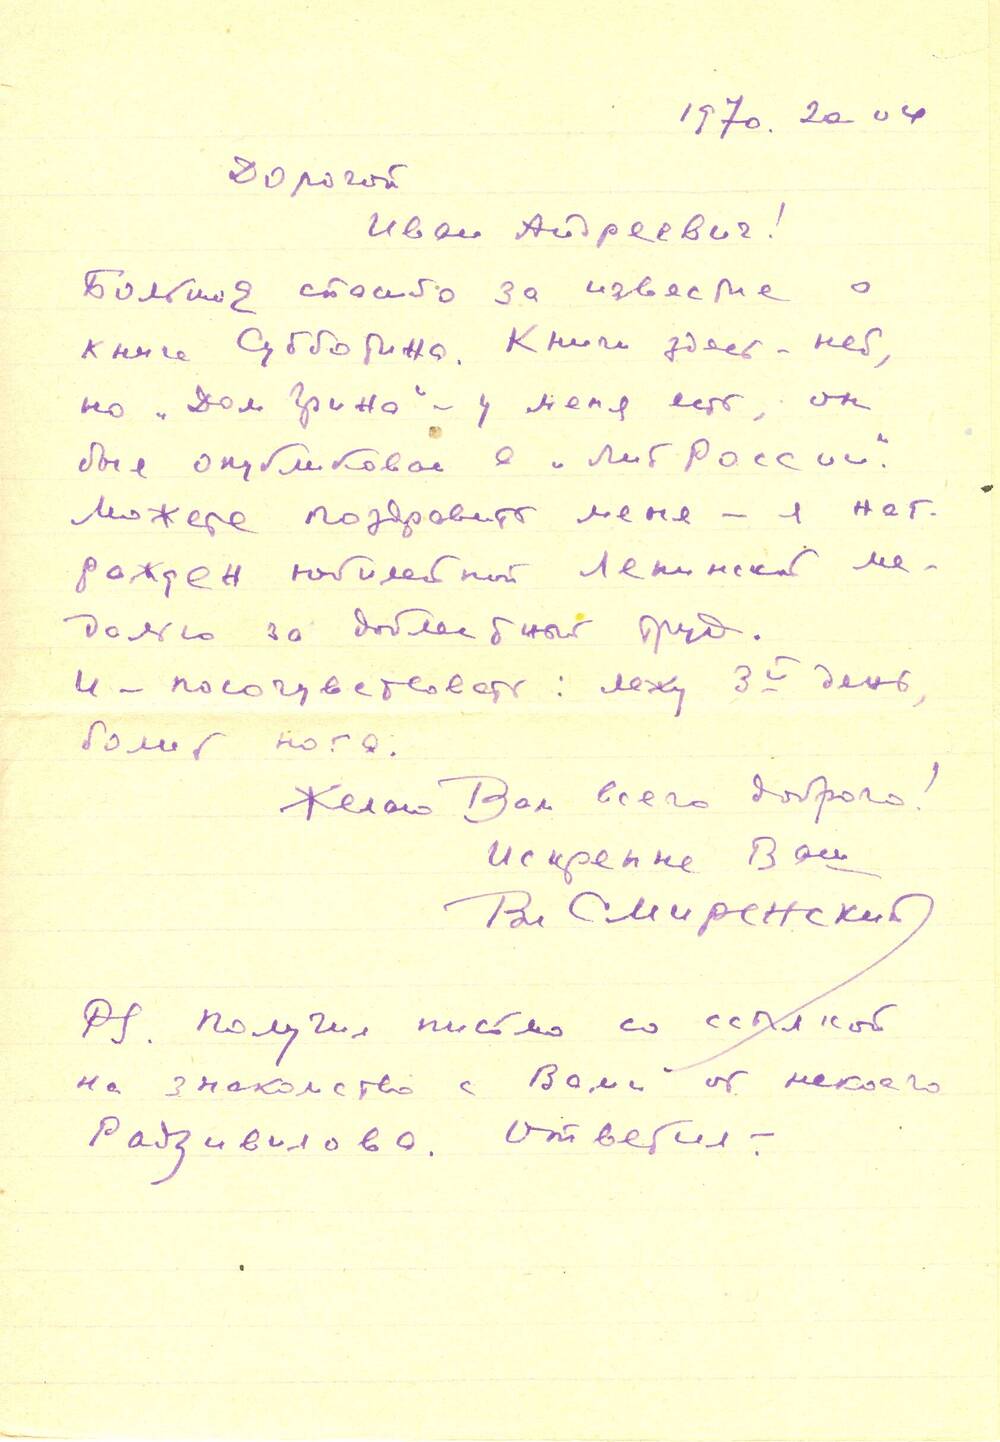 1970. 20 04
Дорогой
Иван Андреевич!
Большое спасибо за известие о
книге Субботина. Книги здесь – нет,
но „Дом Грина“ – у меня есть, он
был опубликован в „Лит России“.
Можете поздравить меня – я наг-
ражден юбилейной Ленинской ме-
далью за доблестный труд.
И – посочувствовать: лежу 3й день,
болит нога.
Желаю Вам всего доброго!
Искренне Ваш
Вл Смиренский
PS. Получил письмо со ссылкой
на знакомство с Вами от некоего
Радзивилова. Ответил –